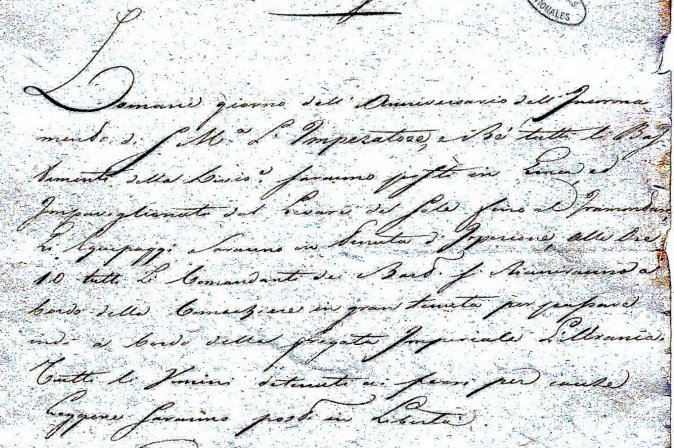 ONALES
Domani giorno dell'Anniversario dell'Incorona
mento di S. M.ª L'Imperatore, e Ré tutti li Bas
timenti della Divis.e saranno posti in Linea ed
Impaviglionati dal Levare del Sole fino al Tramontare
Li Equipaggi saranno in tenuta d'Ispezione, alle Ore
10 tutti Li Comandanti dei Bast.i si riuniranno a
bordo della in gran tenuta per passare
indi a bordo della fregata Imperiale L'Urania
Tutti li Uomini detenuti ai ferri per cause
Leggere saranno posti in Libertà.